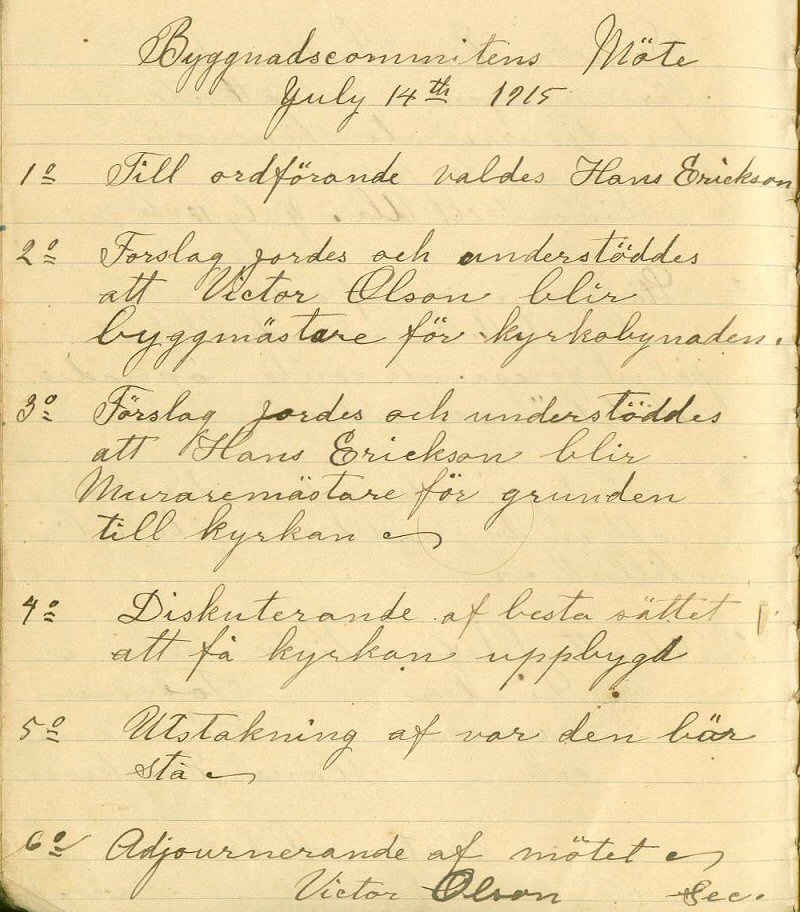 Byggnadscommitens Möte
July 14th 1915
1o Till ordförande valdes Hans Erickson
2o Forslag jordes och understöddes
att Victor Olson blir
byggmästare för kyrkobynaden.
3o Förslag jordes och understöddes
att Hans Erickson blir
Muraremästare för grunden
till kyrkan
4o Diskuterande af besta sättet
att få kyrkan uppbygd
5o Utstakning af var den bär
stå
6o Adjournerande af mötet
Victor Olson Sec.